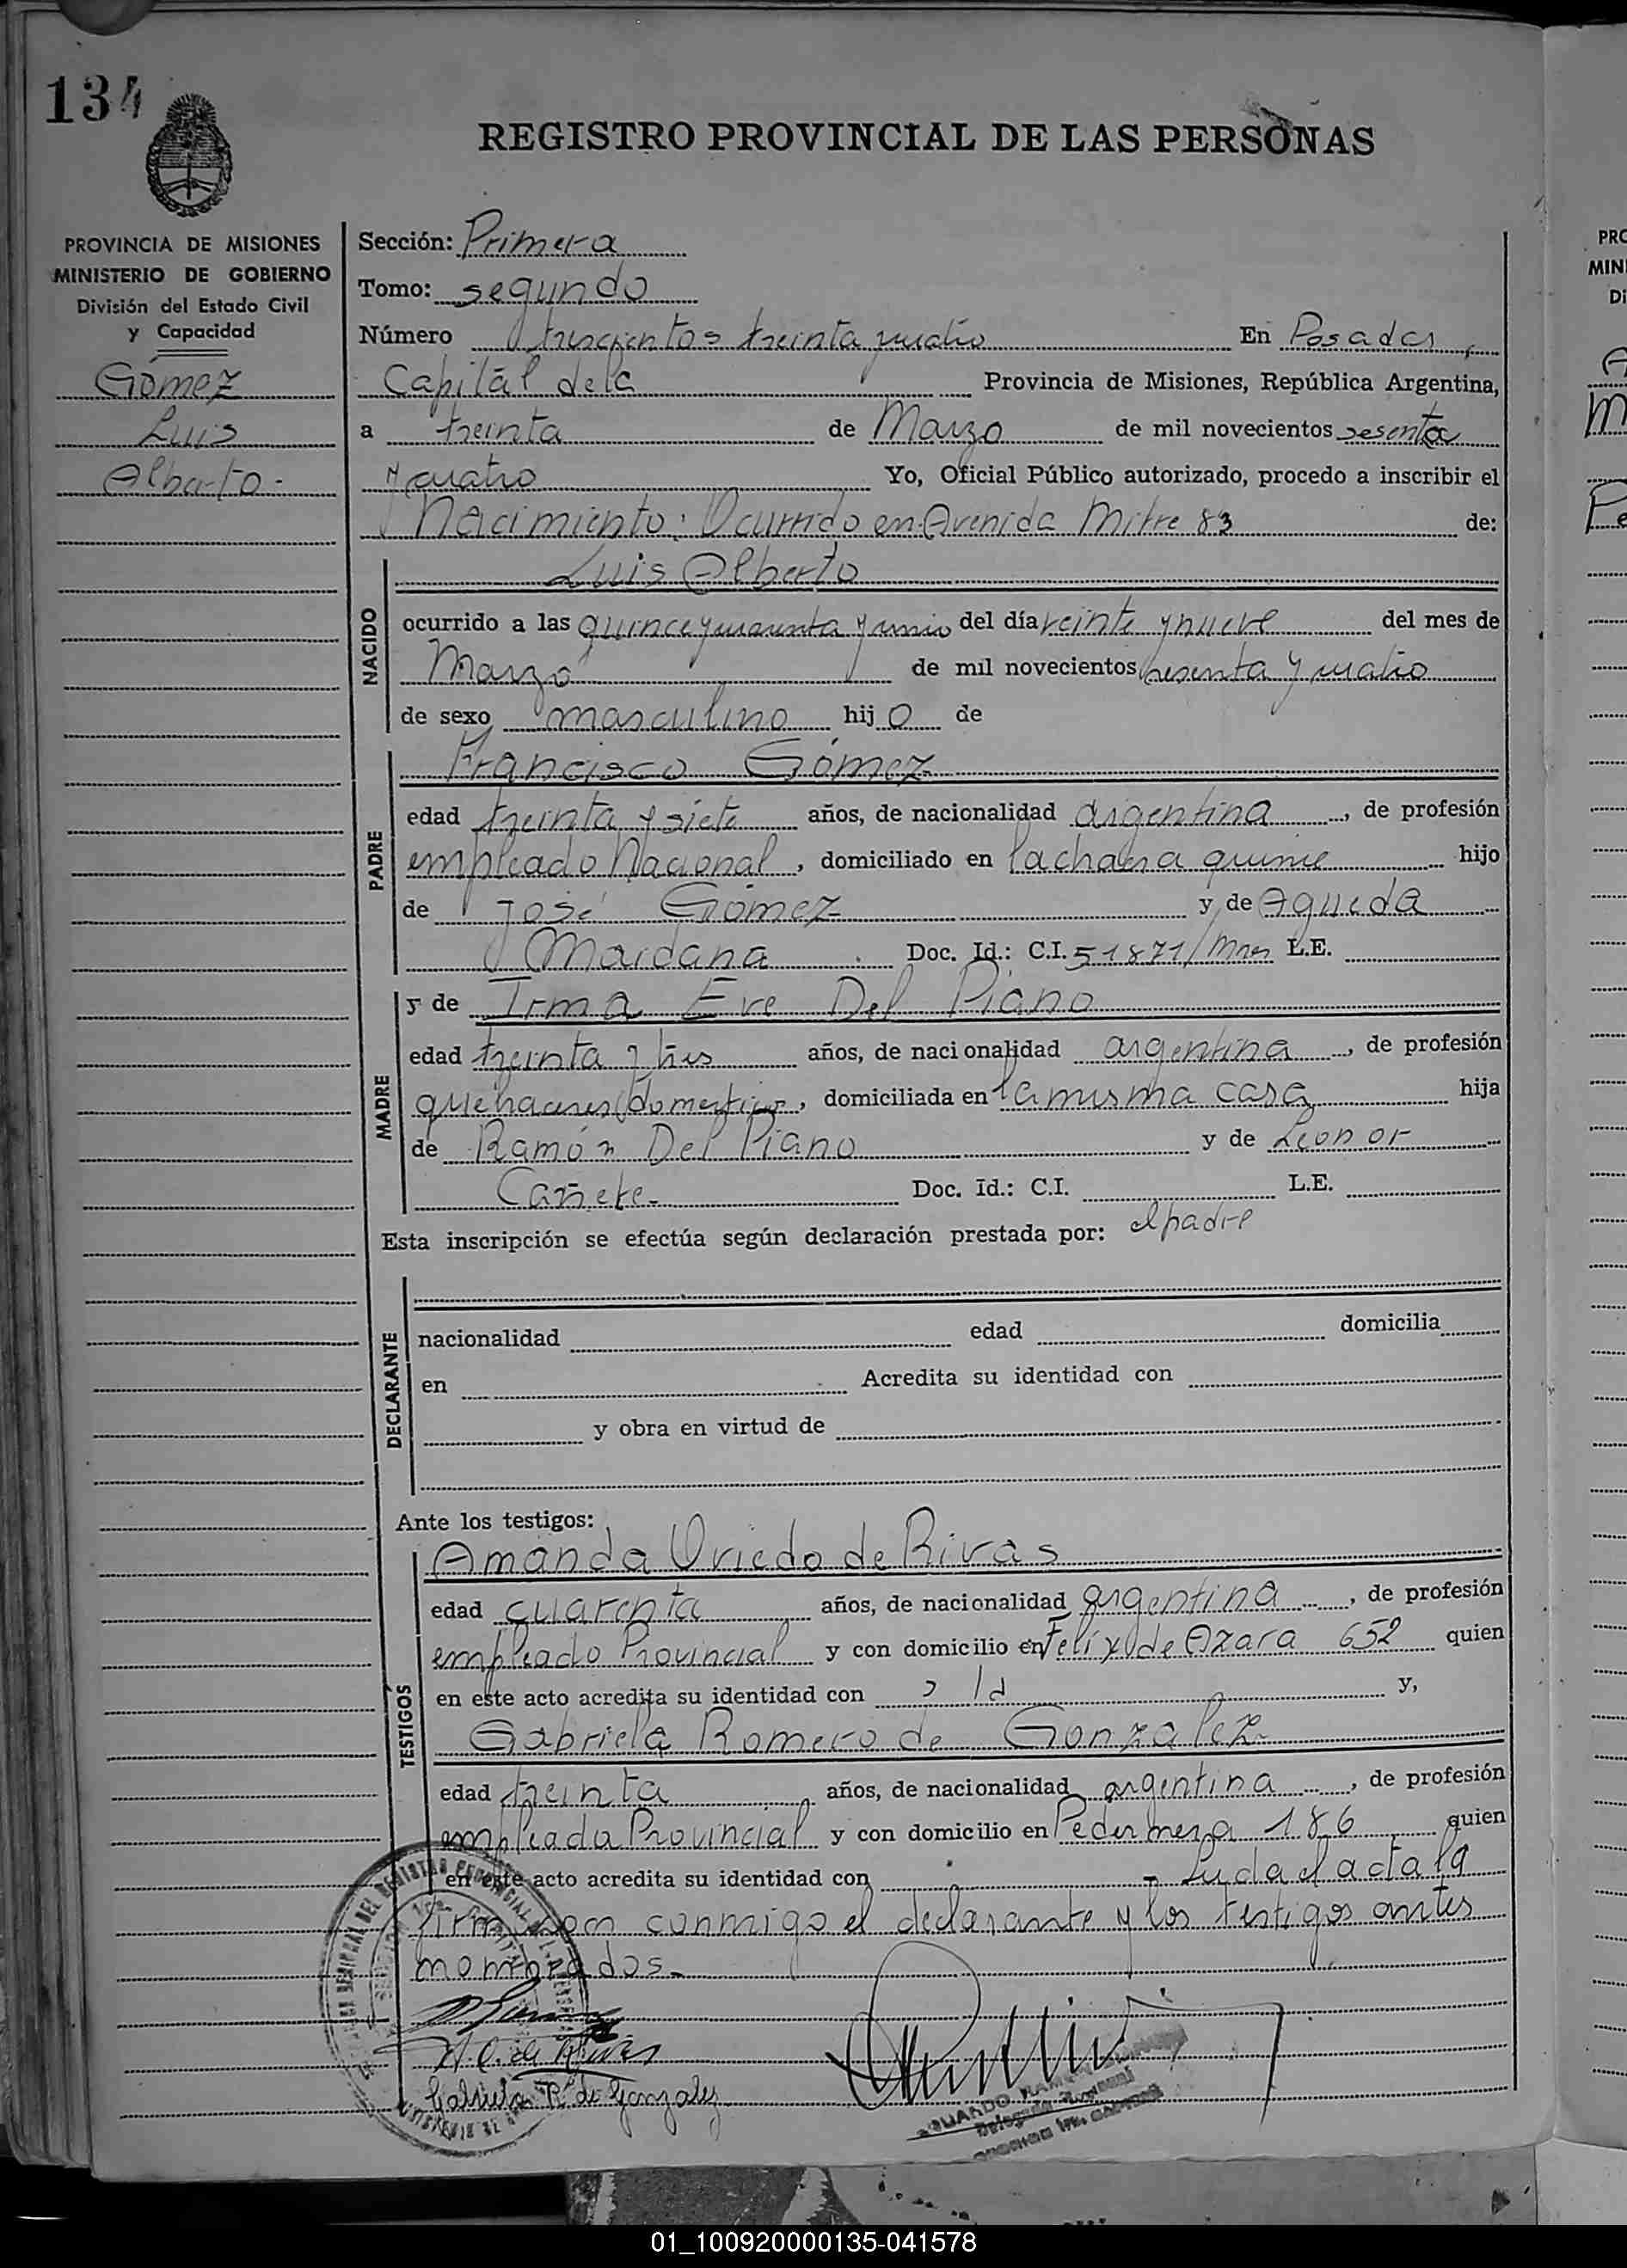 134
REGISTRO PROVINCIAL DE LAS PERSONAS
PROVINCIA DE MISIONES
MINISTERIO DE GOBIERNO
División del Estado Civil
y Capacidad
Gómez
Luis
Alberto -
Sección: Primera
Tomo: segundo
Número trescientos treinta y cuatro En Posadas,
Capital de la Provincia de Misiones, República Argentina,
a treinta de Marzo de mil novecientos sesenta
y cuatro Yo, Oficial Público autorizado, procedo a inscribir el
Nacimiento: Ocurrido en Avenida Mitre 83 de:
NACIDO
Luis Alberto
ocurrido a las quince y cuarenta y cinco del día veinte y nueve del mes de
Marzo de mil novecientos sesenta y cuatro
de sexo masculino hij o de
PADRE
Francisco Gómez
edad treinta y siete años, de nacionalidad argentina, de profesión
empleado Nacional, domiciliado en la chacra quince hijo
de José Gómez y de Agueda
Maidana Doc. Id.: C.I. 51871/Mnes L.E.
MADRE
y de Irma Eve Del Piano
edad treinta y tres años, de nacionalidad argentina, de profesión
quehaceres domesticos, domiciliada en la misma casa hija
de Ramón Del Piano y de Leonor
Cañete- Doc. Id.: C.I. L.E.
Esta inscripción se efectúa según declaración prestada por: el padre
DECLARANTE
nacionalidad edad domicilia
en Acredita su identidad con
y obra en virtud de
Ante los testigos:
TESTIGOS
Amanda Oviedo de Rivas
edad cuarenta años, de nacionalidad argentina, de profesión
empleado Provincial y con domicilio en Felix de Azara 652 quien
en este acto acredita su identidad con y,
Gabriela Romero de Gonzalez
edad treinta años, de nacionalidad argentina, de profesión
empleada Provincial y con domicilio en Pedernera 186 quien
en este acto acredita su identidad con - Leida el acta la
firmaron conmigo el declarante y los testigos antes
nombrados.-
A. O. de Rivas
Gabriela R. de Gonzalez
01_100920000135-041578